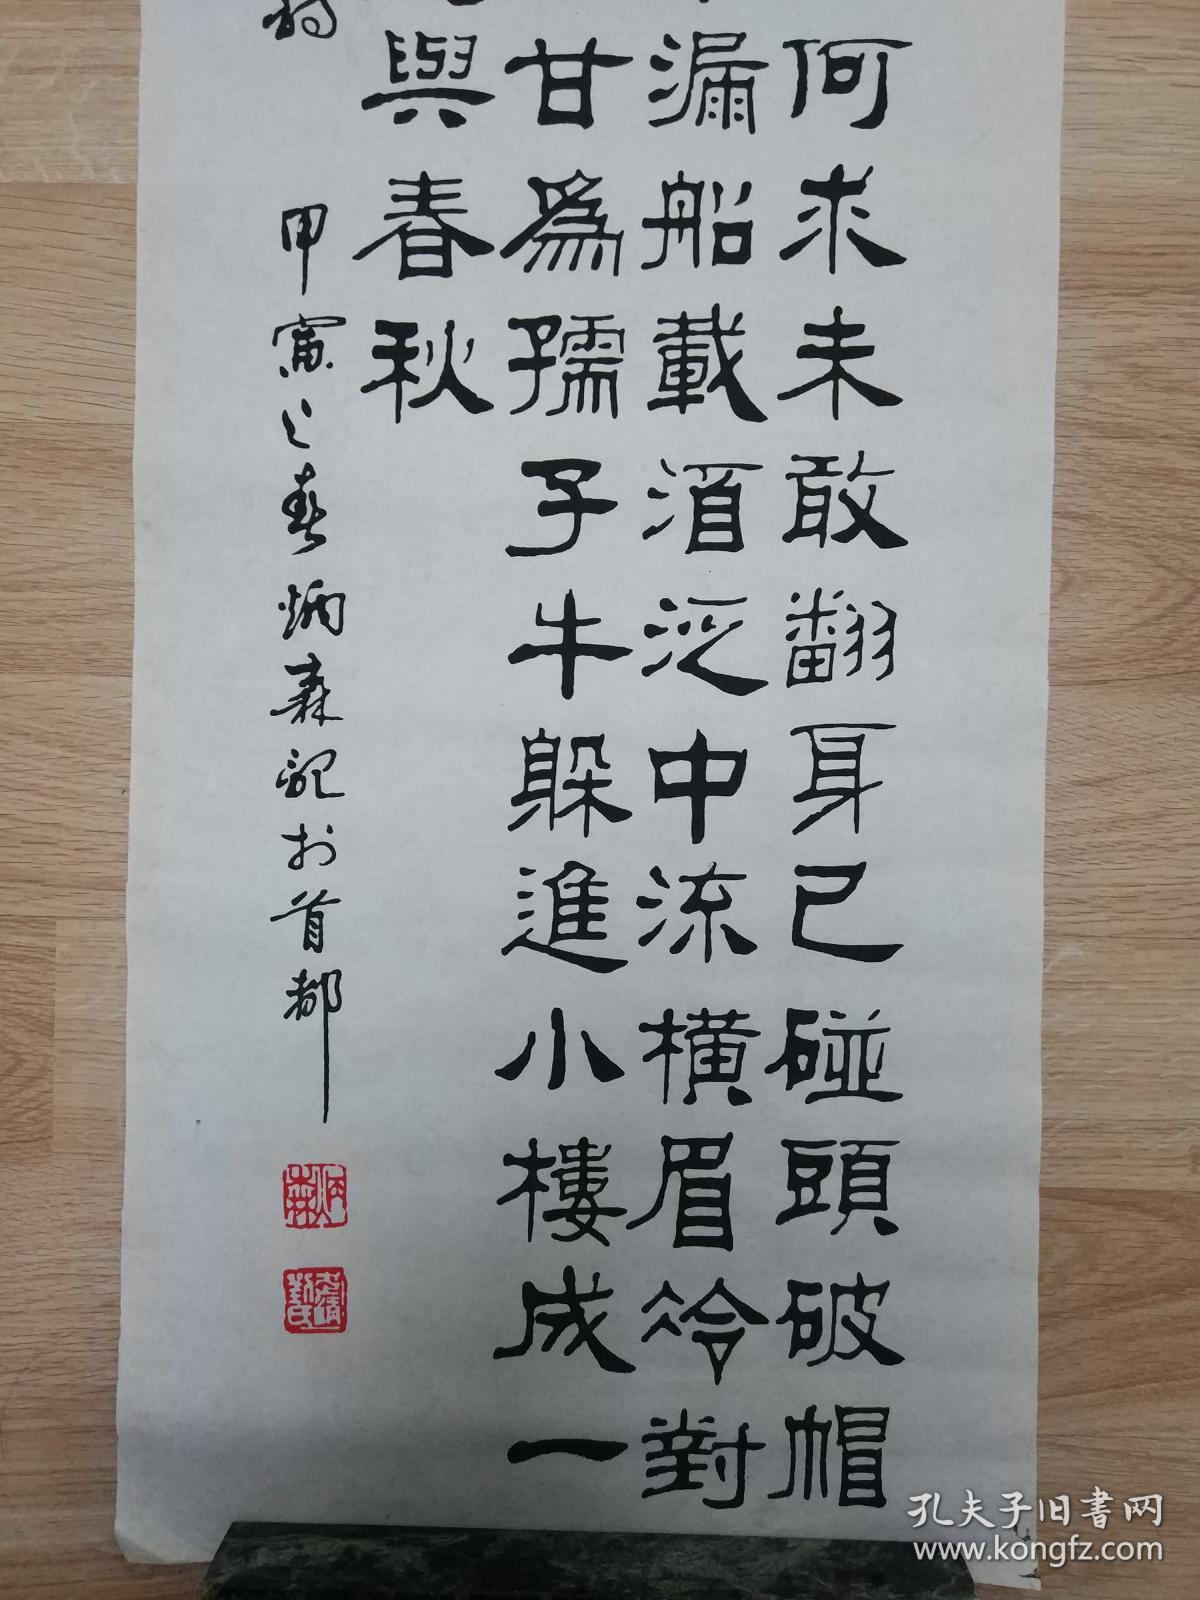 何求未敢翻身已碰頭破帽
漏船載酒泛中流橫眉冷對
甘爲孺子牛躲進小樓成一
與春秋
甲寅之春炳森記於首都
炳森
孔夫子旧书网
www.kongfz.com